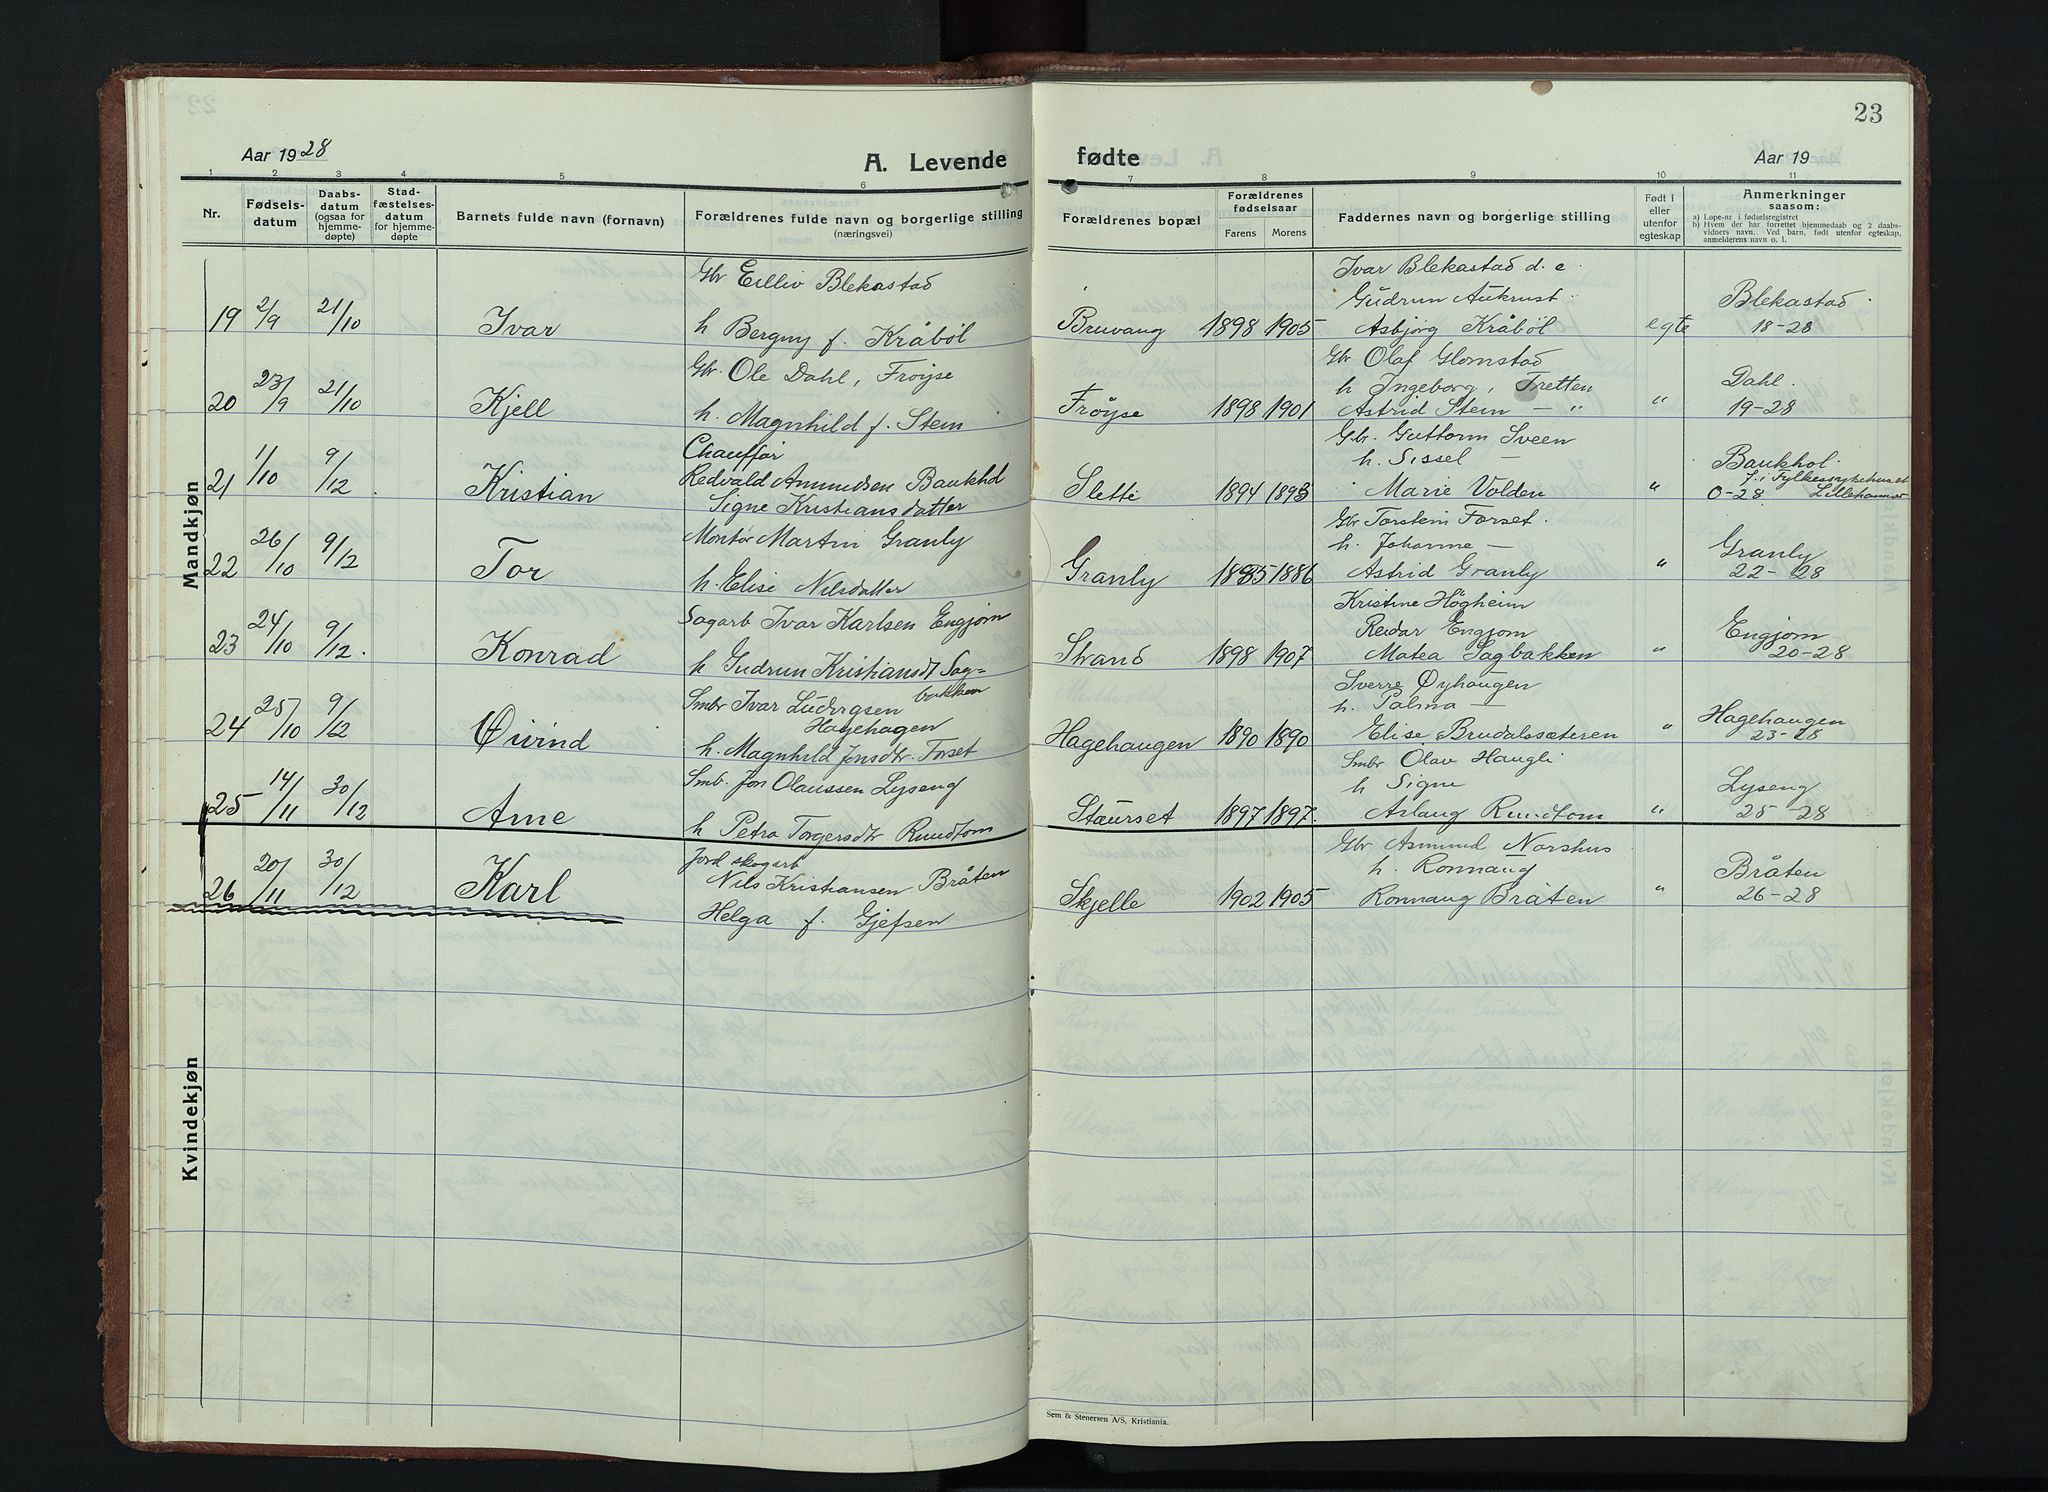 23
Aar 1928
A. Levende
fødte
Aar 19
1 2 3 4 5 6 7 8 9 10 11
Nr.
Fødsels-
datum
Daabs-
datum
(ogsaa for
hjemme-
døpte)
Stad-
fæstelses-
datum
for hjemme-
døpte
Barnets fulde navn (fornavn)
Forældrenes fulde navn og borgerlige stilling
(næringsvei)
Forældrenes bopæl
Forældrenes
fødselsaar
Farens Morens
Faddernes navn og borgerlige stilling
Født i
eller
utenfor
egteskap
Anmerkninger
saasom:
a) Løpe-nr. i fødselsregistret
b) Hvem der har forrettet hjemmedaab og 2 daabs-
vidners navn. Ved barn, født utenfor egteskap,
anmelderens navn o. l.
Mandkjøn
19 2/9 21/10 Ivar
Gbr Eilliv Blekastad
h Bergny f. Kråbøl
Bruvang 1898 1905
Ivar Blekastad d. e
Gudrun Aukrust
Asbjørg Kråbøl
egte
Blekastad
18-28
20 23/9 21/10 Kjell
Gbr. Ole Dahl, Frøyse
h. Magnhild f. Stein
Frøyse 1898 1901
Gbr Olaf Glomstad
h Ingeborg, Tretten
Astrid Stein - "
"
Dahl.
19-28
21 1/10 9/12 Kristian
Chauffør
Redvald Amundsen Baukhol
Signe Kristiansdatter
Slette 1894 1893
Gbr. Guttorm Sveen
h. Sissel -
Marie Volden
"
Baukhol.
f. i Fylkessykehuset
0-28 Lillehammer
22 26/10 9/12 Tor
Montør Martin Granly
h. Elise Nilsdatter
Granly 1885 1886
Gbr Torstein Forset.
h. Johanne -
Astrid Granly
"
Granly
22-28
23 24/10 9/12. Konrad
Sagarb Ivar Karlsen Engjom
h Gudrun Kristiansdt Sag-
bakken
Strand 1898 1907
Kristine Høgheim
Reidar Engjom
Matea Sagbakken
"
Engjom
20-28
24 25/10 9/12 Øivind
Smbr Ivar Ludvigsen
Hagehagen
h. Magnhild Jonsdtr. Forset
Hagehaugen 1890 1890
Sverre Øyhaugen
h. Palma -
Elise Brudalssæteren
"
Hagehaugen
23-28
25 14/11 30/12 Arne
Smb. Jon Olaussen Lyseng
h Petra Torgersdtr Rundtom
Staurset 1897 1897.
Smbr Olav Haugli
h Signe
Aslaug Rundtom
"
Lyseng
25-28
26 20/11 30/12 Karl
Jord skogarb
Nils Kristiansen Bråten
Helga f. Gjefsen
Skjelle 1902 1905
Gbr Asmund Norshus
h. Ronnaug
Ronnaug Bråten
"
Bråten
26-28
Kvindekjøn
Sem & Stenersen A/S, Kristiania.